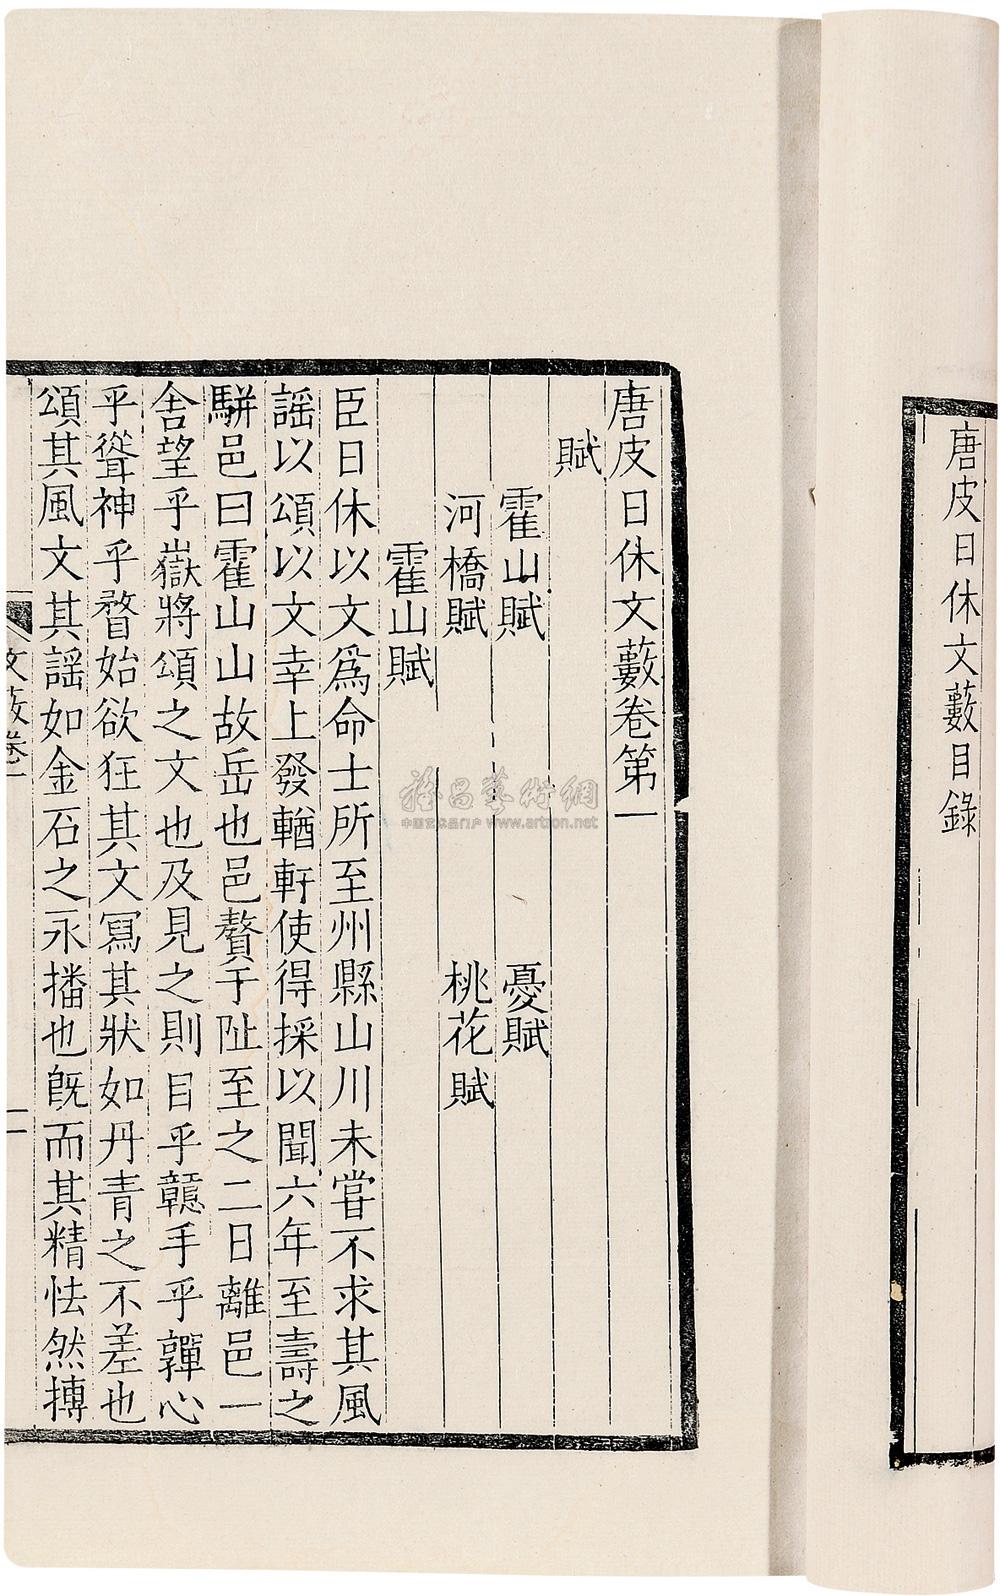 唐皮日休文藪目錄
唐皮日休文藪卷第一
賦
霍山賦 憂賦
河橋賦 桃花賦
霍山賦
臣日休以文爲命士所至州縣山川未嘗不求其風
謡以頌以文幸上發輶軒使得採以聞六年至壽之
駢邑曰霍山山故岳也邑贅于阯至之二日離邑一
舍望乎嶽將頌之文也及見之則目乎戇手乎亸心
乎聳神乎瞀始欲狂其文寫其狀如丹青之不差也
頌其風文其謡如金石之永播也旣而其精怯然摶
文藪卷一
一
雅昌藝術網
中国艺术品门户 www.artron.net